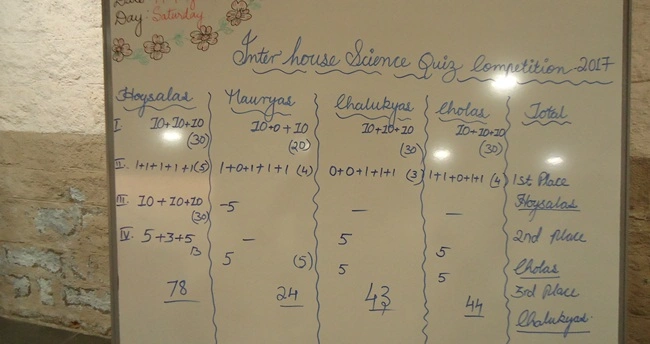 Day: Saturday
Inter house Science Quiz Competition-2017
Hoysalas Mauryas Chalukyas Cholas Total
I. 10+10+10 10+0+10 10+10+10 10+10+10
(30) (20) (30) (30)
II. 1+1+1+1+1 (5) 1+0+1+1+1 (4) 0+0+1+1+1 (3) 1+1+0+1+1 (4) 1st Place
III. 10+10+10 -5 — — Hoysalas
(30)
IV. 5+3+5 — 5 2nd Place
13 5 (5) 5 5 Cholas
5
78 24 43 44 3rd Place
Chalukyas.